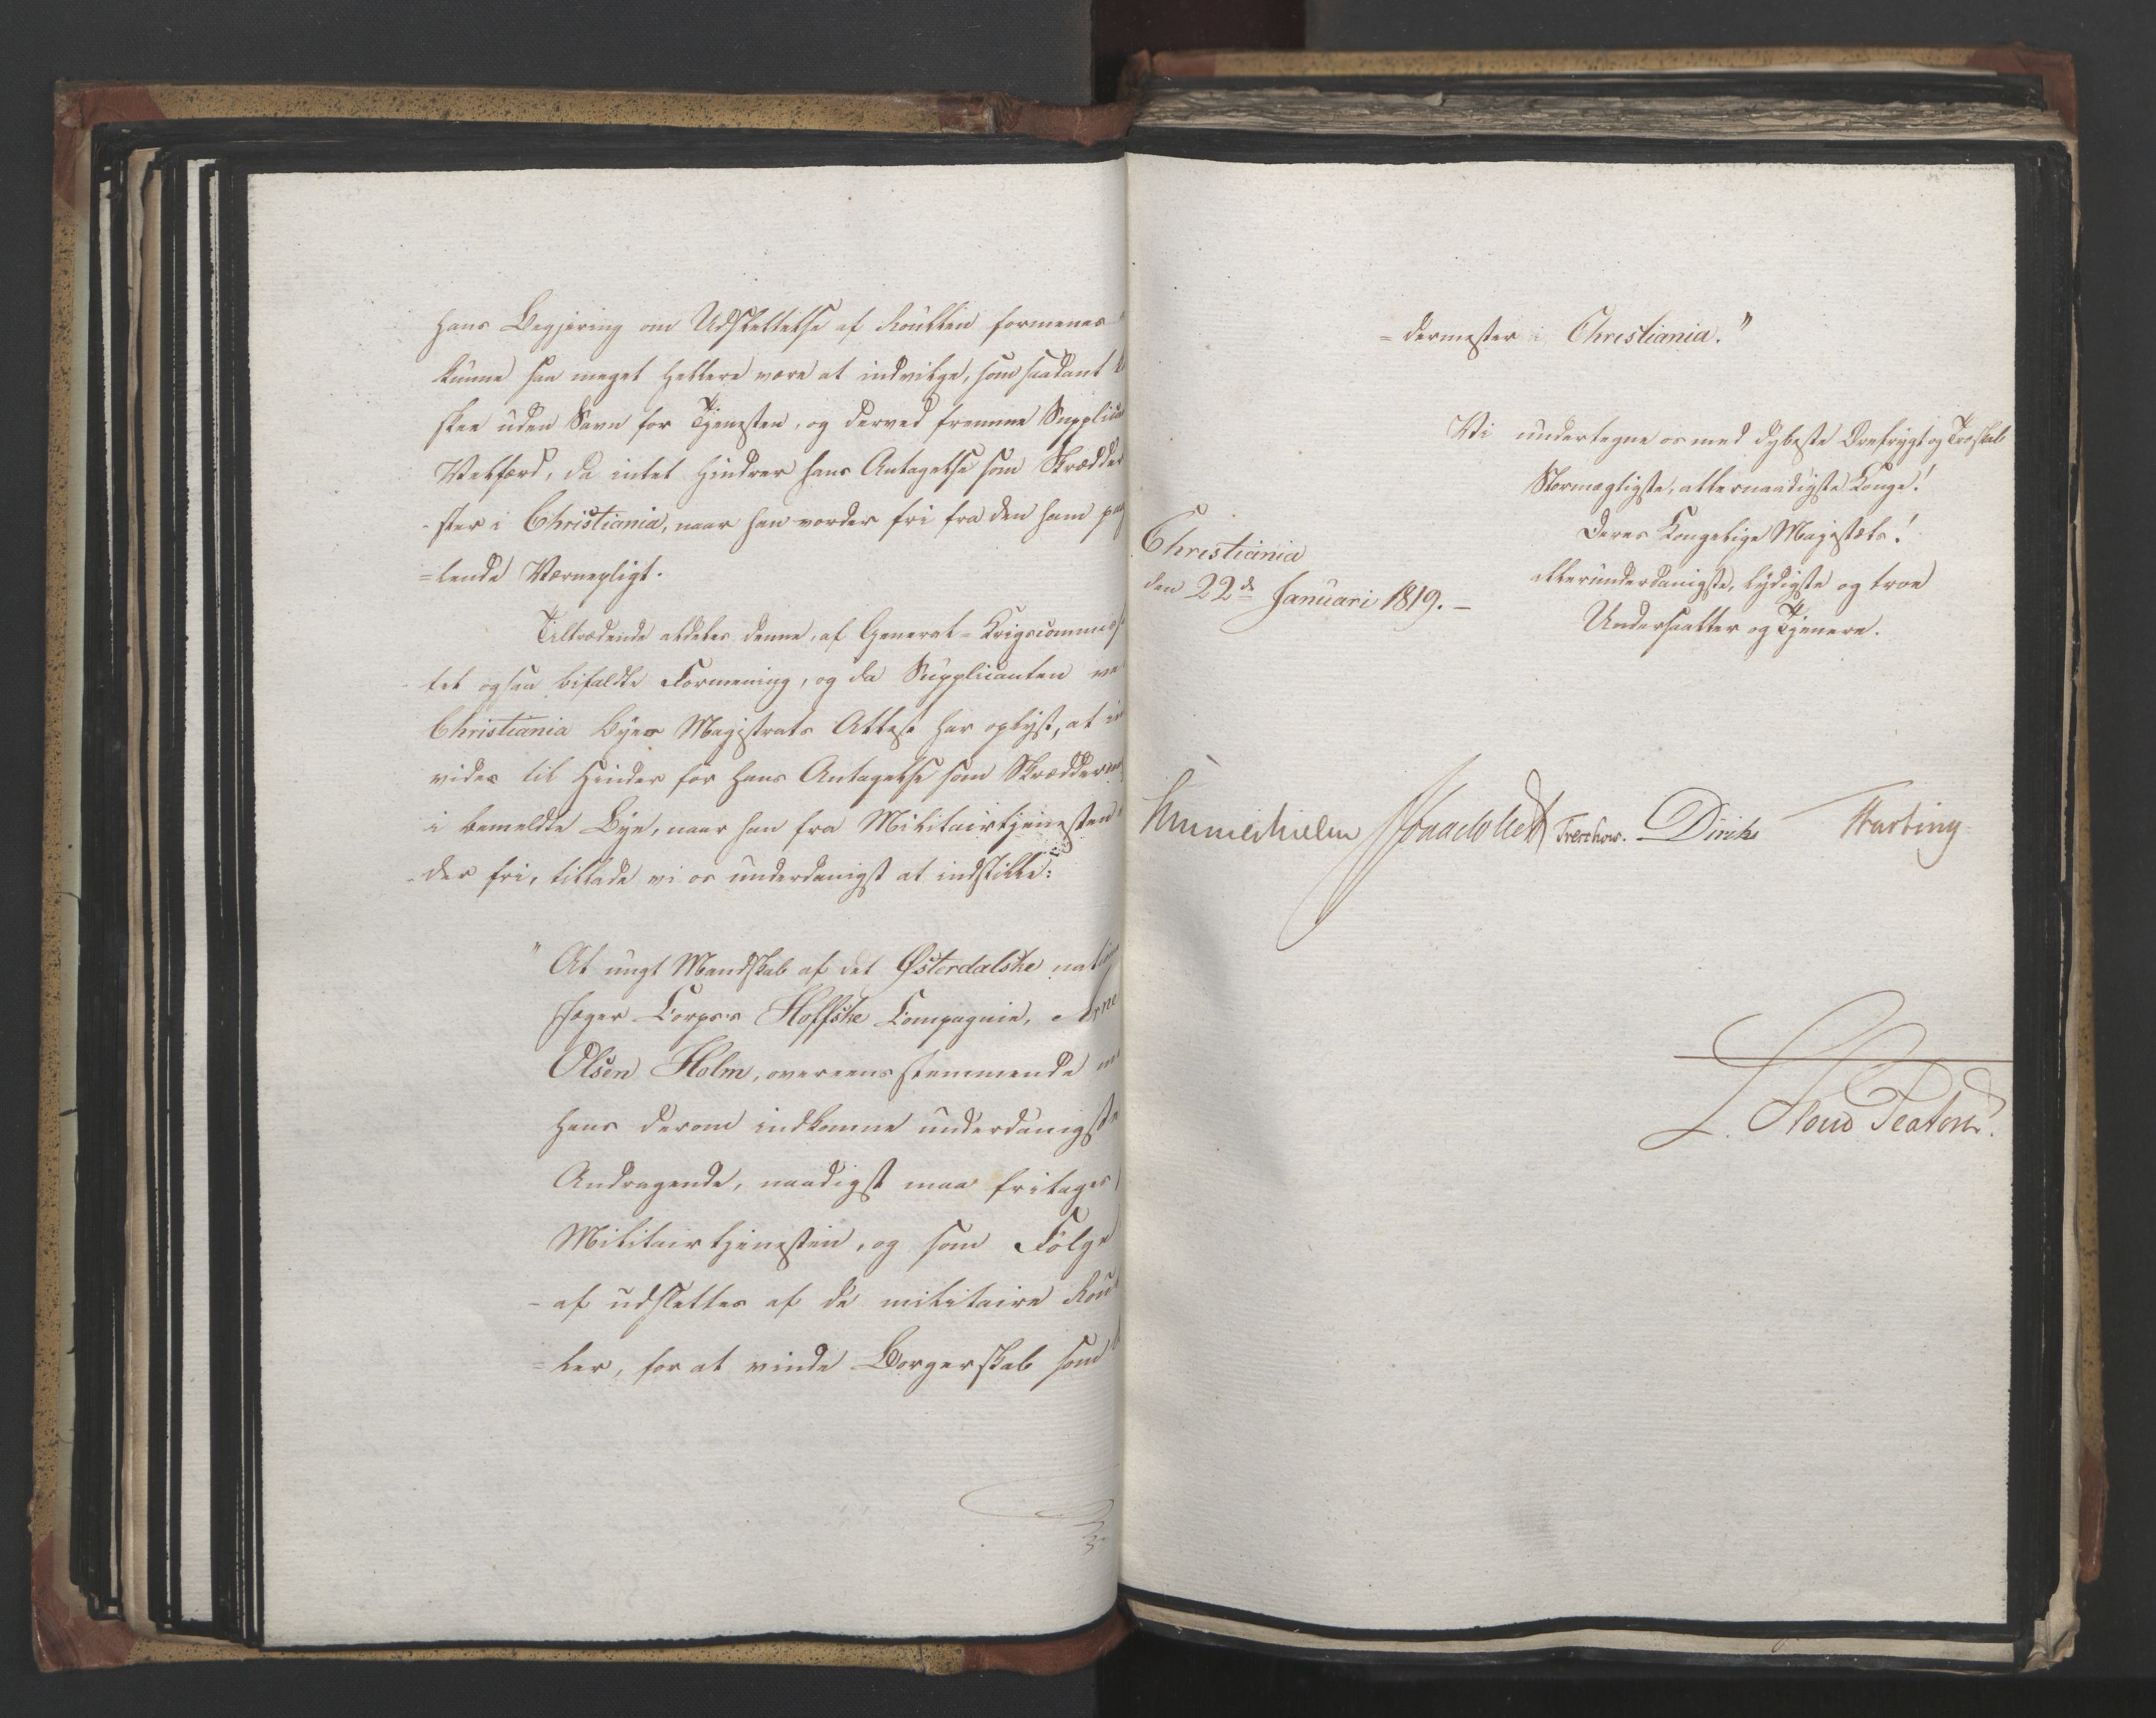 hans Begjering om Udslettelse af Roullen formenes
kunne saa meget hellere være at indvilge, som saadant
skee uden Savn for Tjenesten, og derved fremme Supplica
Velfærd, da intet hindrer hans Antagelse som Skrædder
-ster i Christiania, naar han vorder fri fra den ham paa
=lende Værnepligt.
Tiltrædende aldeles denne, af General-Krigscommiss
-tet ogsaa bifaldte Formening, og da Supplicanten ve
Christiania Byes Magistrats Attest har oplyst, at in
vides til Hinder for hans Antagelse som Skrædderm
i bemeldte Bye, naar han fra Militairtjenesten
-der fri, tillade vi os underdanigst at indstille:
"At ungt Mandskab af det Østerdalske nation
Jæger Corps's Hoffske Compagnie, Arne
Olsen Holm, overeensstemmende m
hans derom indkomne underdanigste
Andragende, naadigst maa fritages
Militairtjenesten, og som Følge
-af udslettes af de militaire Roul
=ler, for at vinde Borgerskab som
=dermester i Christiania."
Vi undertegne os med dybeste Ærefrygt og Troskab
Stormægtigste, allernaadigste Konge!
Deres Kongelige Majestæts!
allerunderdanigste, lydigste og troe
Undersaatter og Tjenere.
Christiania
den 22de Januari 1819. -
Hummerhielm Treschow. Diriks